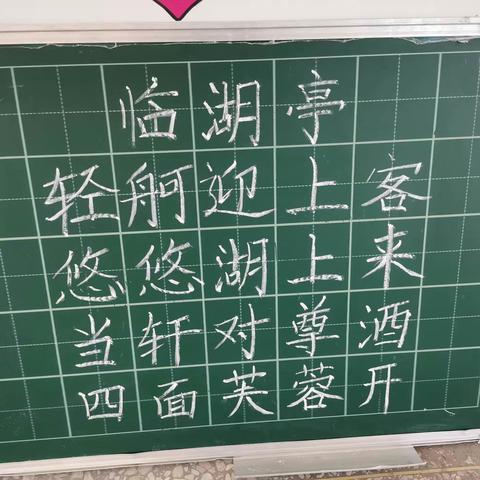 临湖亭
轻舸迎上客
悠悠湖上来
当轩对尊酒
四面芙蓉开